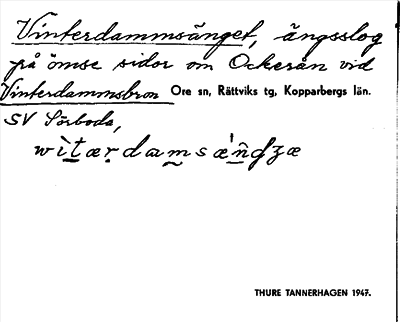 Vinterdammsänget, ängsslog
på ömse sidor om Ockerån vid
Vinterdammsbron Ore sn, Rättviks tg, Kopparbergs län.
SV Sörboda,
THURE TANNERHAGEN 1947.